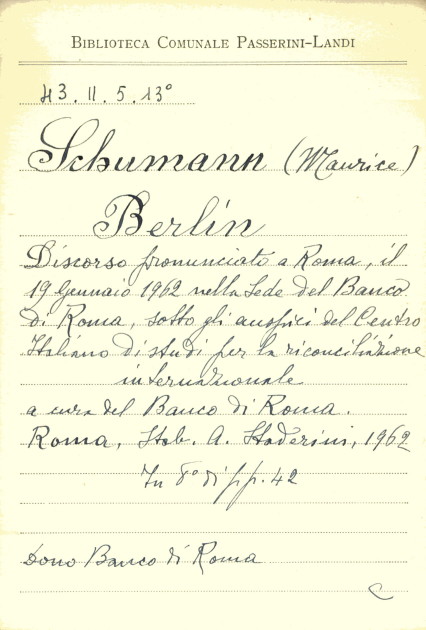 BIBLIOTECA COMUNALE PASSERINI-LANDI
43. II. 5. 13°
Schumann (Maurice)
Berlin
Discorso pronunciato a Roma, il
19 Gennaio 1962 nella Sede del Banco
di Roma, sotto gli auspici del Centro
Italiano di studi per la riconciliazione
internazionale
a cura del Banco di Roma.
Roma, Stab. A. Staderini, 1962
In 8° di pp. 42
Dono Banco di Roma
C